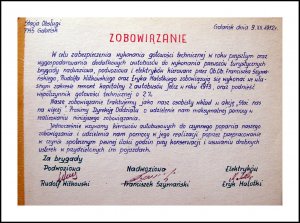 Stacja Obsługi
Gdańsk dnia 9.XII.1972r.
ZOBOWIĄZANIE
W celu zabezpieczenia wykonania gotowości technicznej w roku przyszłym oraz
wygospodarowania dodatkowych autobusów do wykonania przewozów turystycznych
brygady nadwoziowa, podwoziowa i elektryków kierowane przez Ob.Ob. Franciszka Szymańskiego,
Rudolfa Witkowskiego oraz Eryka Halatka zobowiązują się wykonać we własnym
zakresie remont kapitalny 2 autobusów Jelcz w roku 1973, oraz podnieść
współczynnik gotowości technicznej o 2 %
Nasze zobowiązanie traktujemy jako nasz osobisty wkład w akcję „Stać nas
na więcej". Prosimy Dyrekcję Oddziału o udzielenie nam maksymalnej pomocy w
realizowaniu niniejszego zobowiązania.
Jednocześnie wzywamy kierowców autobusowych do czynnego poparcia naszego
zobowiązania i udzielenia nam pomocy w jego realizacji poprzez przepracowanie
w czynie społecznym pewnej ilości godzin przy konserwacji i usuwaniu drobnych
usterek w przydzielonych im pojazdach.
Za brygady
Podwoziowa Nadwoziowa Elektryków
Rudolf Witkowski Franciszek Szymański Eryk Halatki